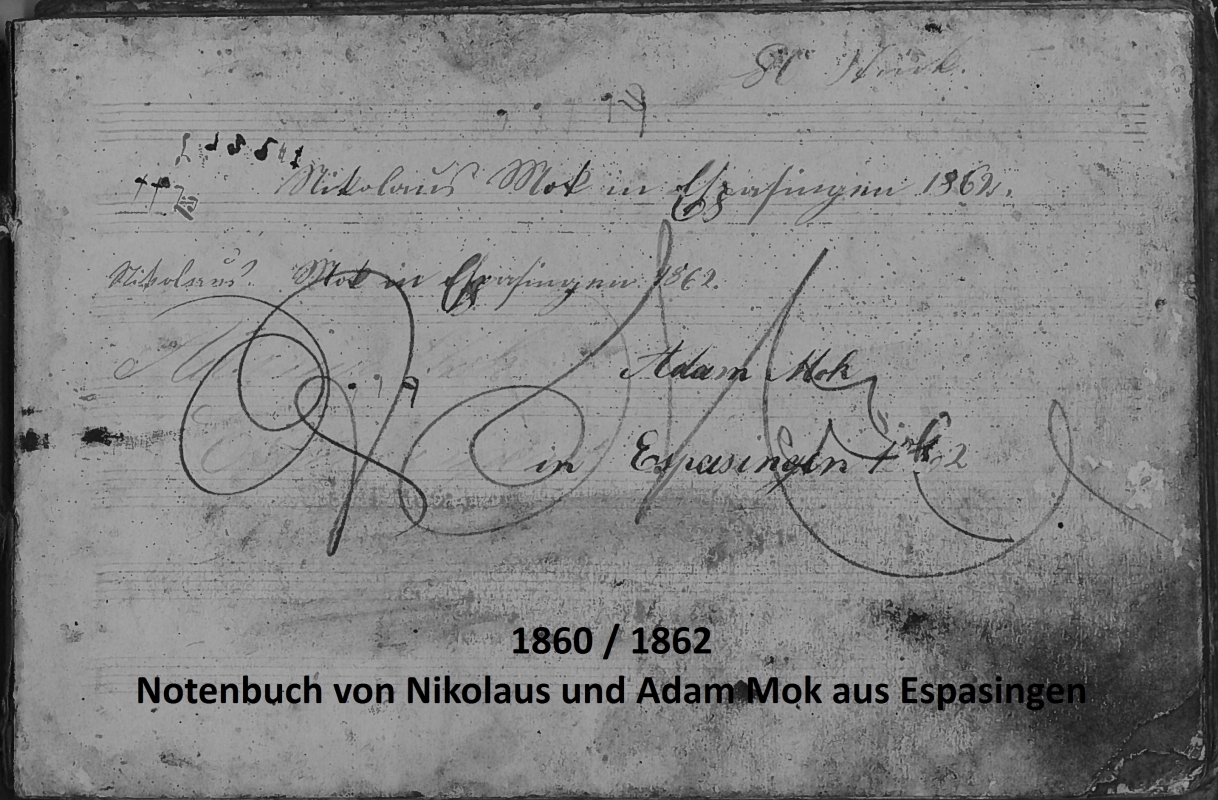 Nikolaus Mok in Espasingen 1862.
Nikolaus Mok in Espasingen 1862.
Adam Mok
in Espasingen
1860 / 1862
Notenbuch von Nikolaus und Adam Mok aus Espasingen